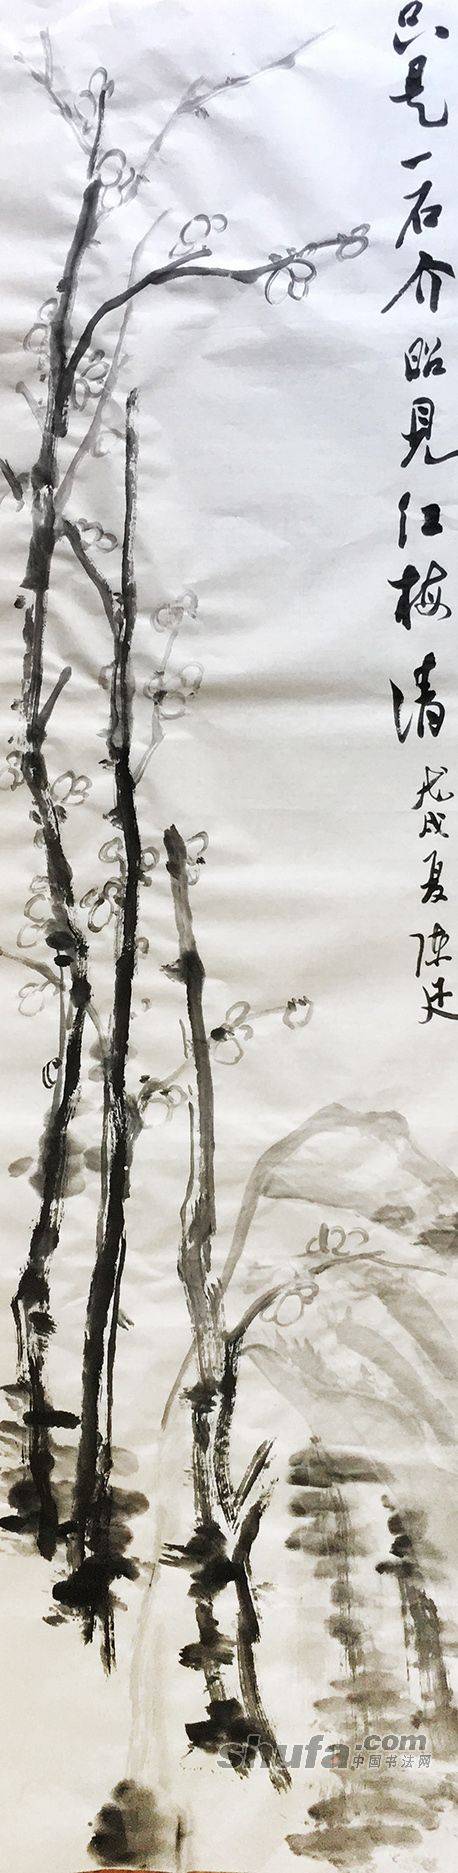 只是一石介昭見红梅清
戊戌夏陈廷
shufa.com
中国书法网